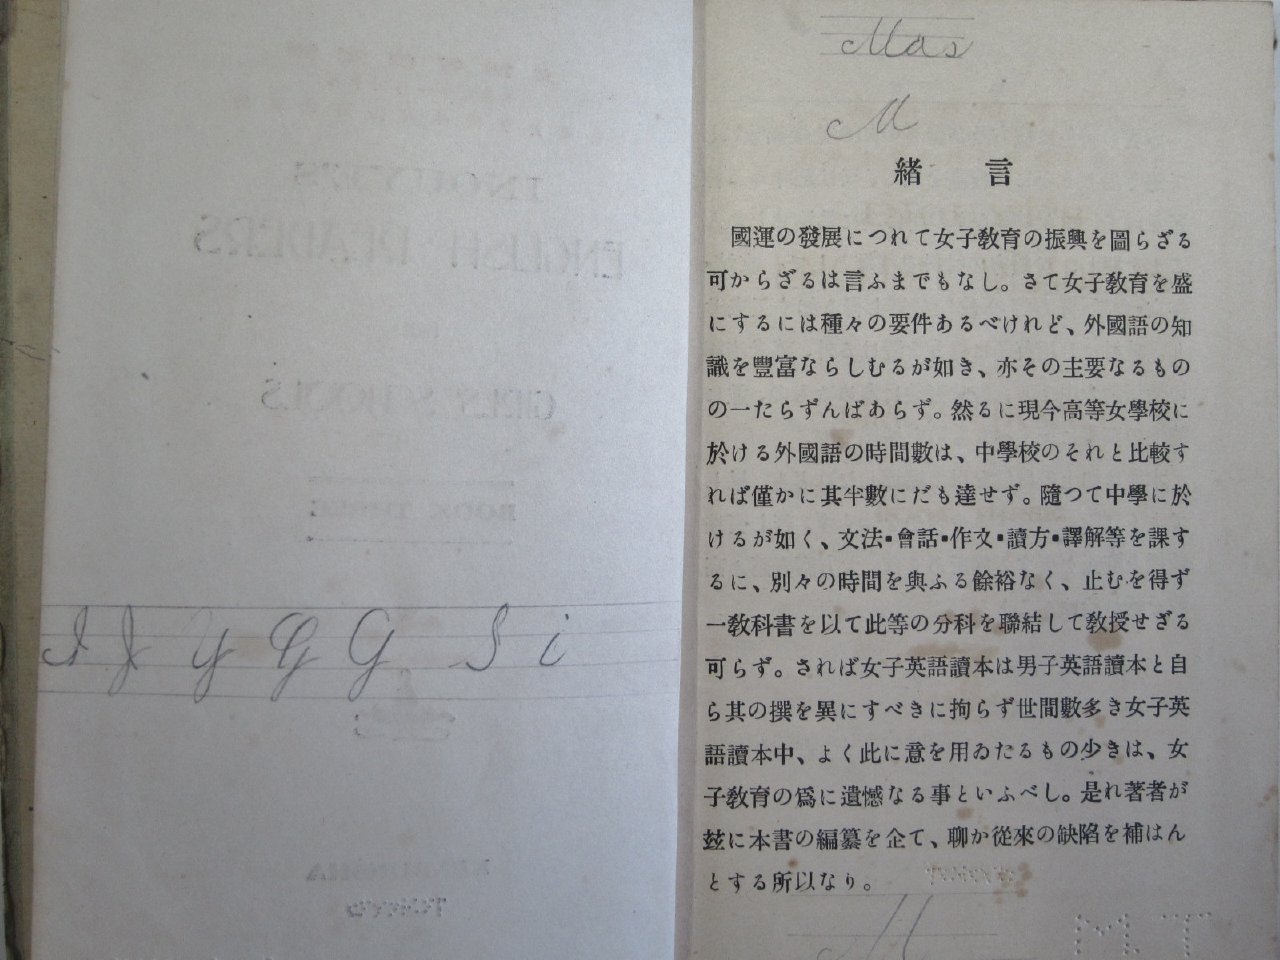 I J Y G G S i
Mas
M
緒言
國運の發展につれて女子敎育の振興を圖らざる
可からざるは言ふまでもなし。さて女子敎育を盛
にするには種々の要件あるべけれど、外國語の知
識を豐富ならしむるが如き、亦その主要なるもの
の一たらずんばあらず。然るに現今高等女學校に
於ける外國語の時間數は、中學校のそれと比較す
れば僅かに其半數にだも達せず。隨つて中學に於
けるが如く、文法・會話・作文・讀方・譯解等を課す
るに、別々の時間を與ふる餘裕なく、止むを得ず
一敎科書を以て此等の分科を聯結して敎授せざる
可らず。されば女子英語讀本は男子英語讀本と自
ら其の撰を異にすべきに拘らず世間數多き女子英
語讀本中、よく此に意を用ゐたるもの少きは、女
子敎育の爲に遺憾なる事といふべし。是れ著者が
玆に本書の編纂を企て、聊か從來の缺陷を補はん
とする所以なり。
M
M T